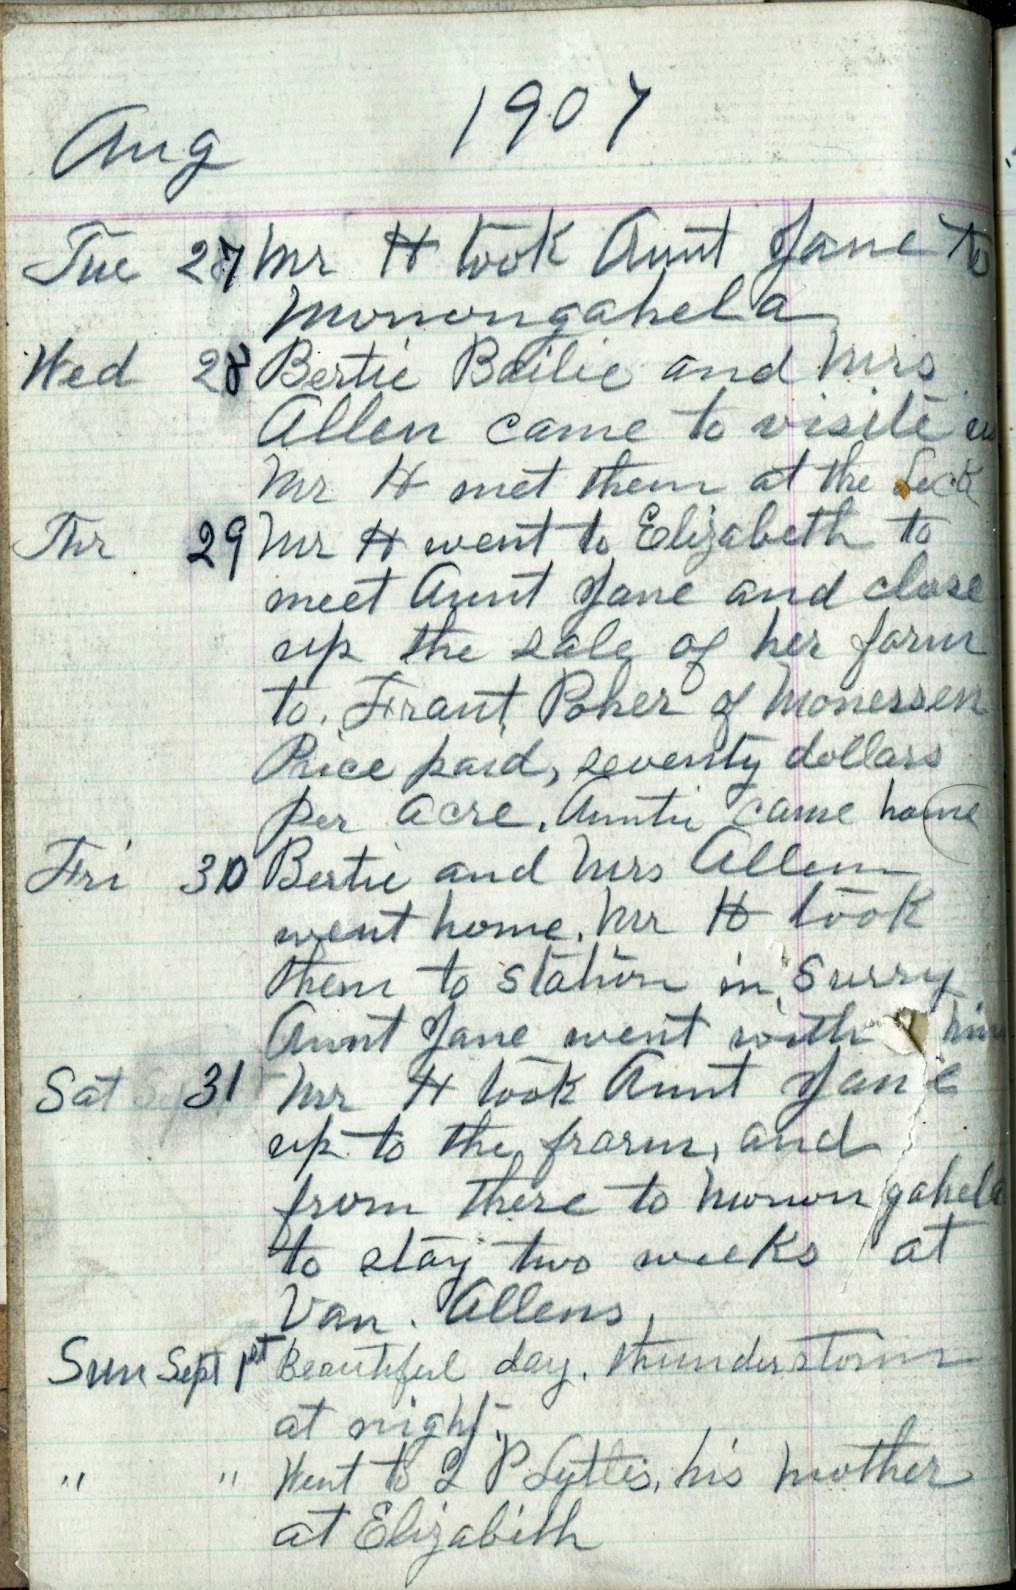 Aug 1907
Tue 27 Mr H took Aunt Jane to
Monongahela
Wed 28 Bertie Bailie and Mrs
Allen came to visite us
Mr H met them at the Lock
Thr 29 Mr H went to Elizabeth to
meet Aunt Jane and close
up the sale of her farm
to. Frant Poher of Monessen
Price paid, seventy dollars
per acre. Auntie came home
Fri 30 Bertie and Mrs Allen
went home. Mr H took
them to station in Surry
Aunt Jane went with him
Sat 31 Mr H took Aunt Jane
up to the frarm, and
from there to Monongahela
to stay two weeks at
Van. Allens.
Sun Sept 1st Beautiful day. thunderstorm
at night.
" " Went to L P Lyttes, his mother
at Elizabeth